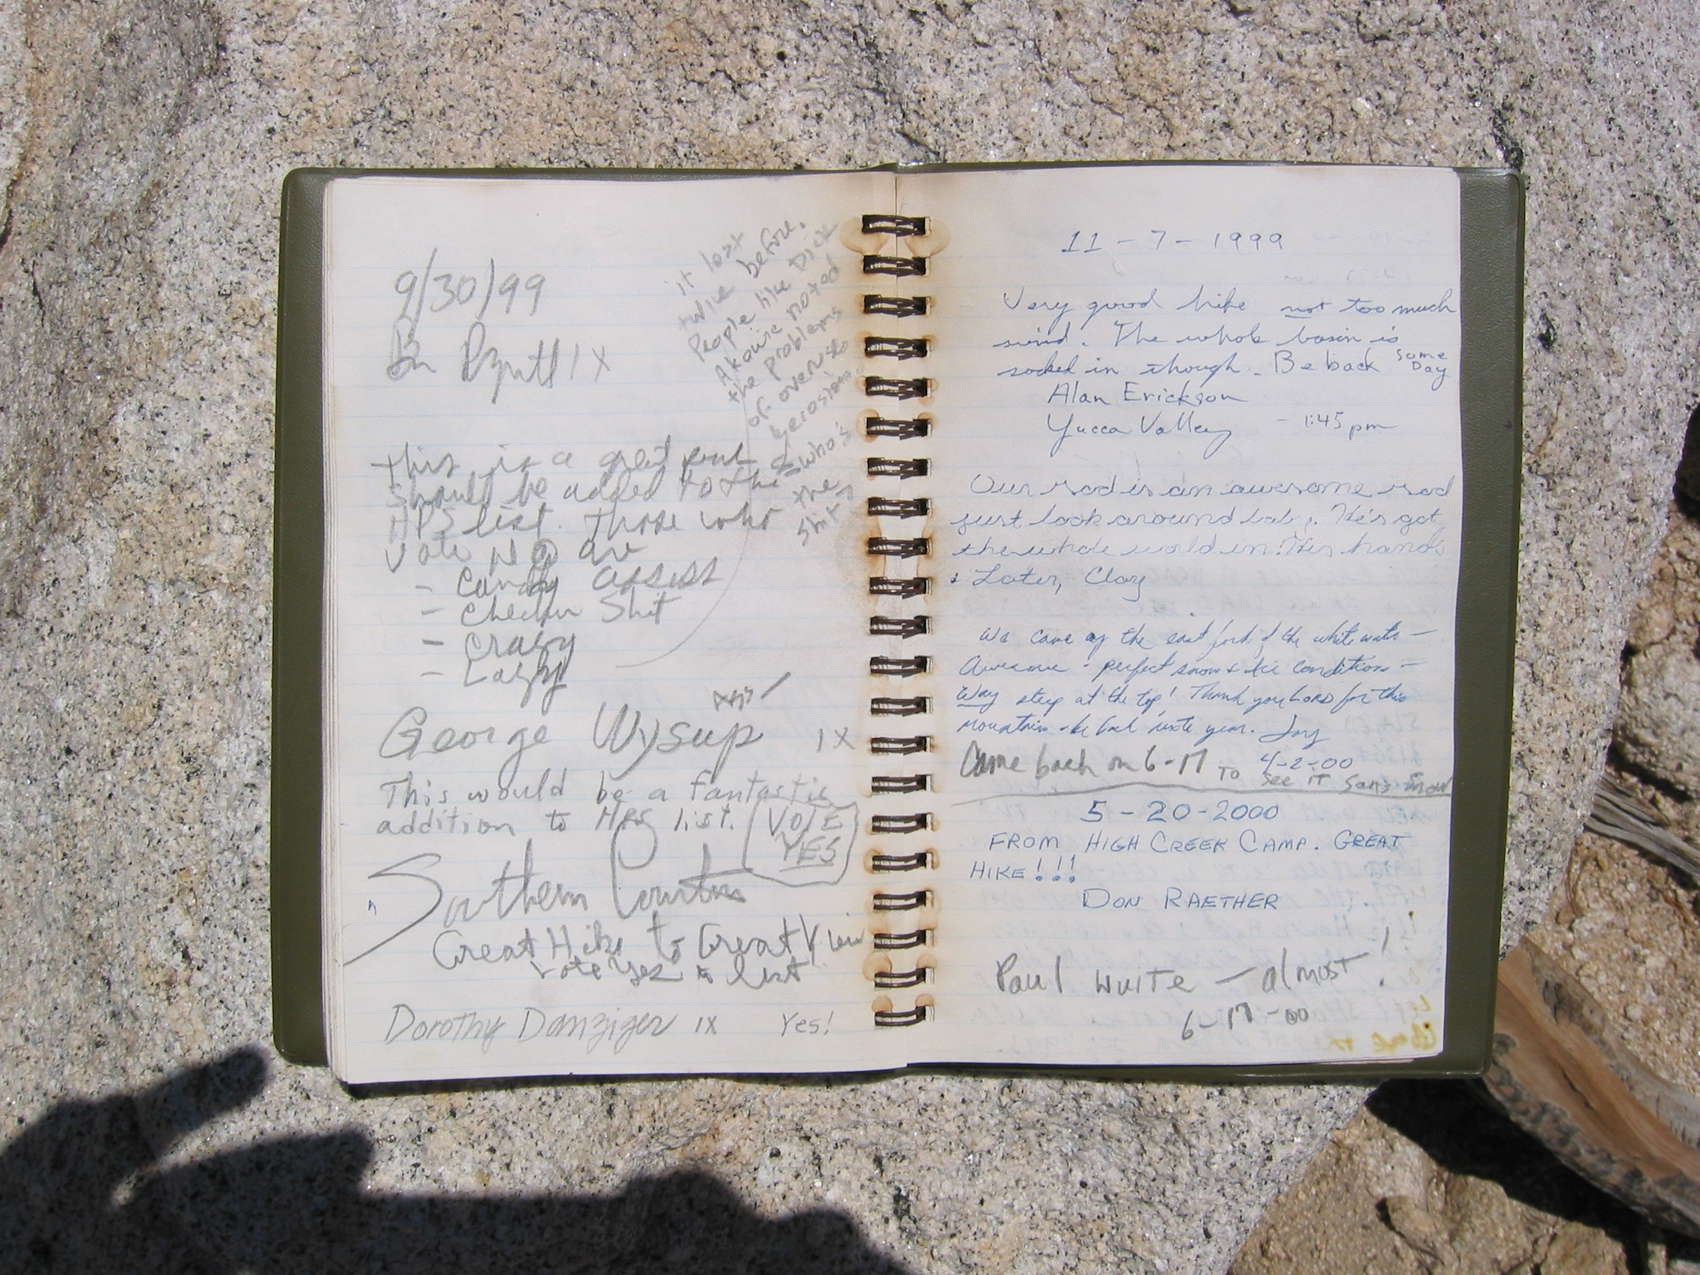 9/30/99
1X
it lost
twice before.
People like Dick
Akawie noted
the problems
of overuse
& erosion.
who's
the
shit
this is a great peak
should be added to the
HPS list. Those who
vote NO are
- candy asses
- chicken shit
- crazy
- Lazy
George Wysup 1X
This would be a fantastic
addition to HPS list. VOTE
YES
Southern Courtness
Great Hike to Great View
vote yes to list
Dorothy Danziger 1X Yes!
11-7-1999
Very good hike not too much
wind. The whole basin is
socked in though. Be back some
Day
Alan Erickson
Yucca Valley - 1:45 pm
Our rad is an awesome rad
just look around baby. He's got
the whole world in His hands
Later, Clay
We came up the east fork of the white water -
Awesome - perfect snow & ice conditions -
Way steep at the top! Thank you LORD for this
mountain - be back next year. Jay
4-2-00
Came back on 6-17 TO SEE IT Sans Snow
5-20-2000
FROM HIGH CREEK CAMP. GREAT
HIKE!!!
DON RAETHER
Paul White - almost!
6-17-00